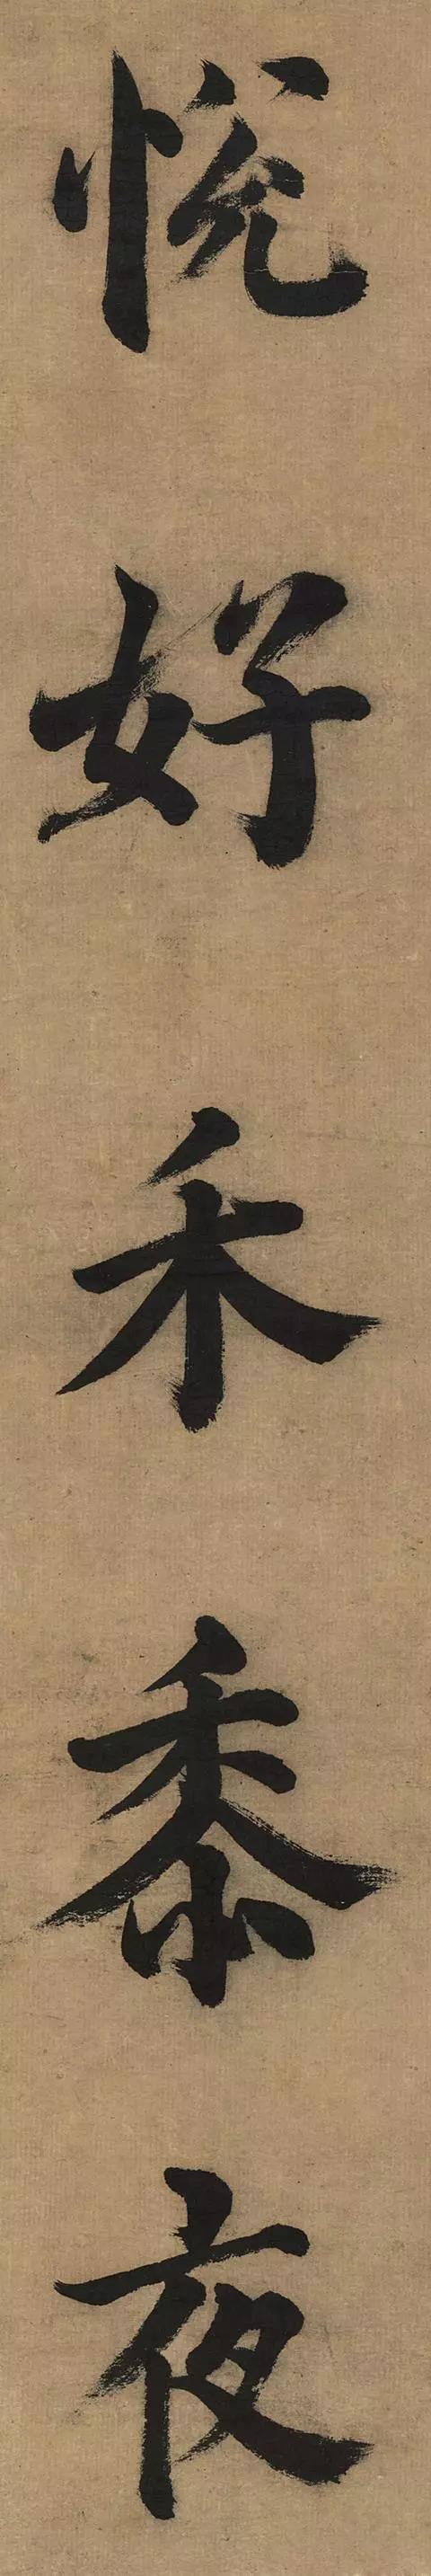 悦好禾黍夜